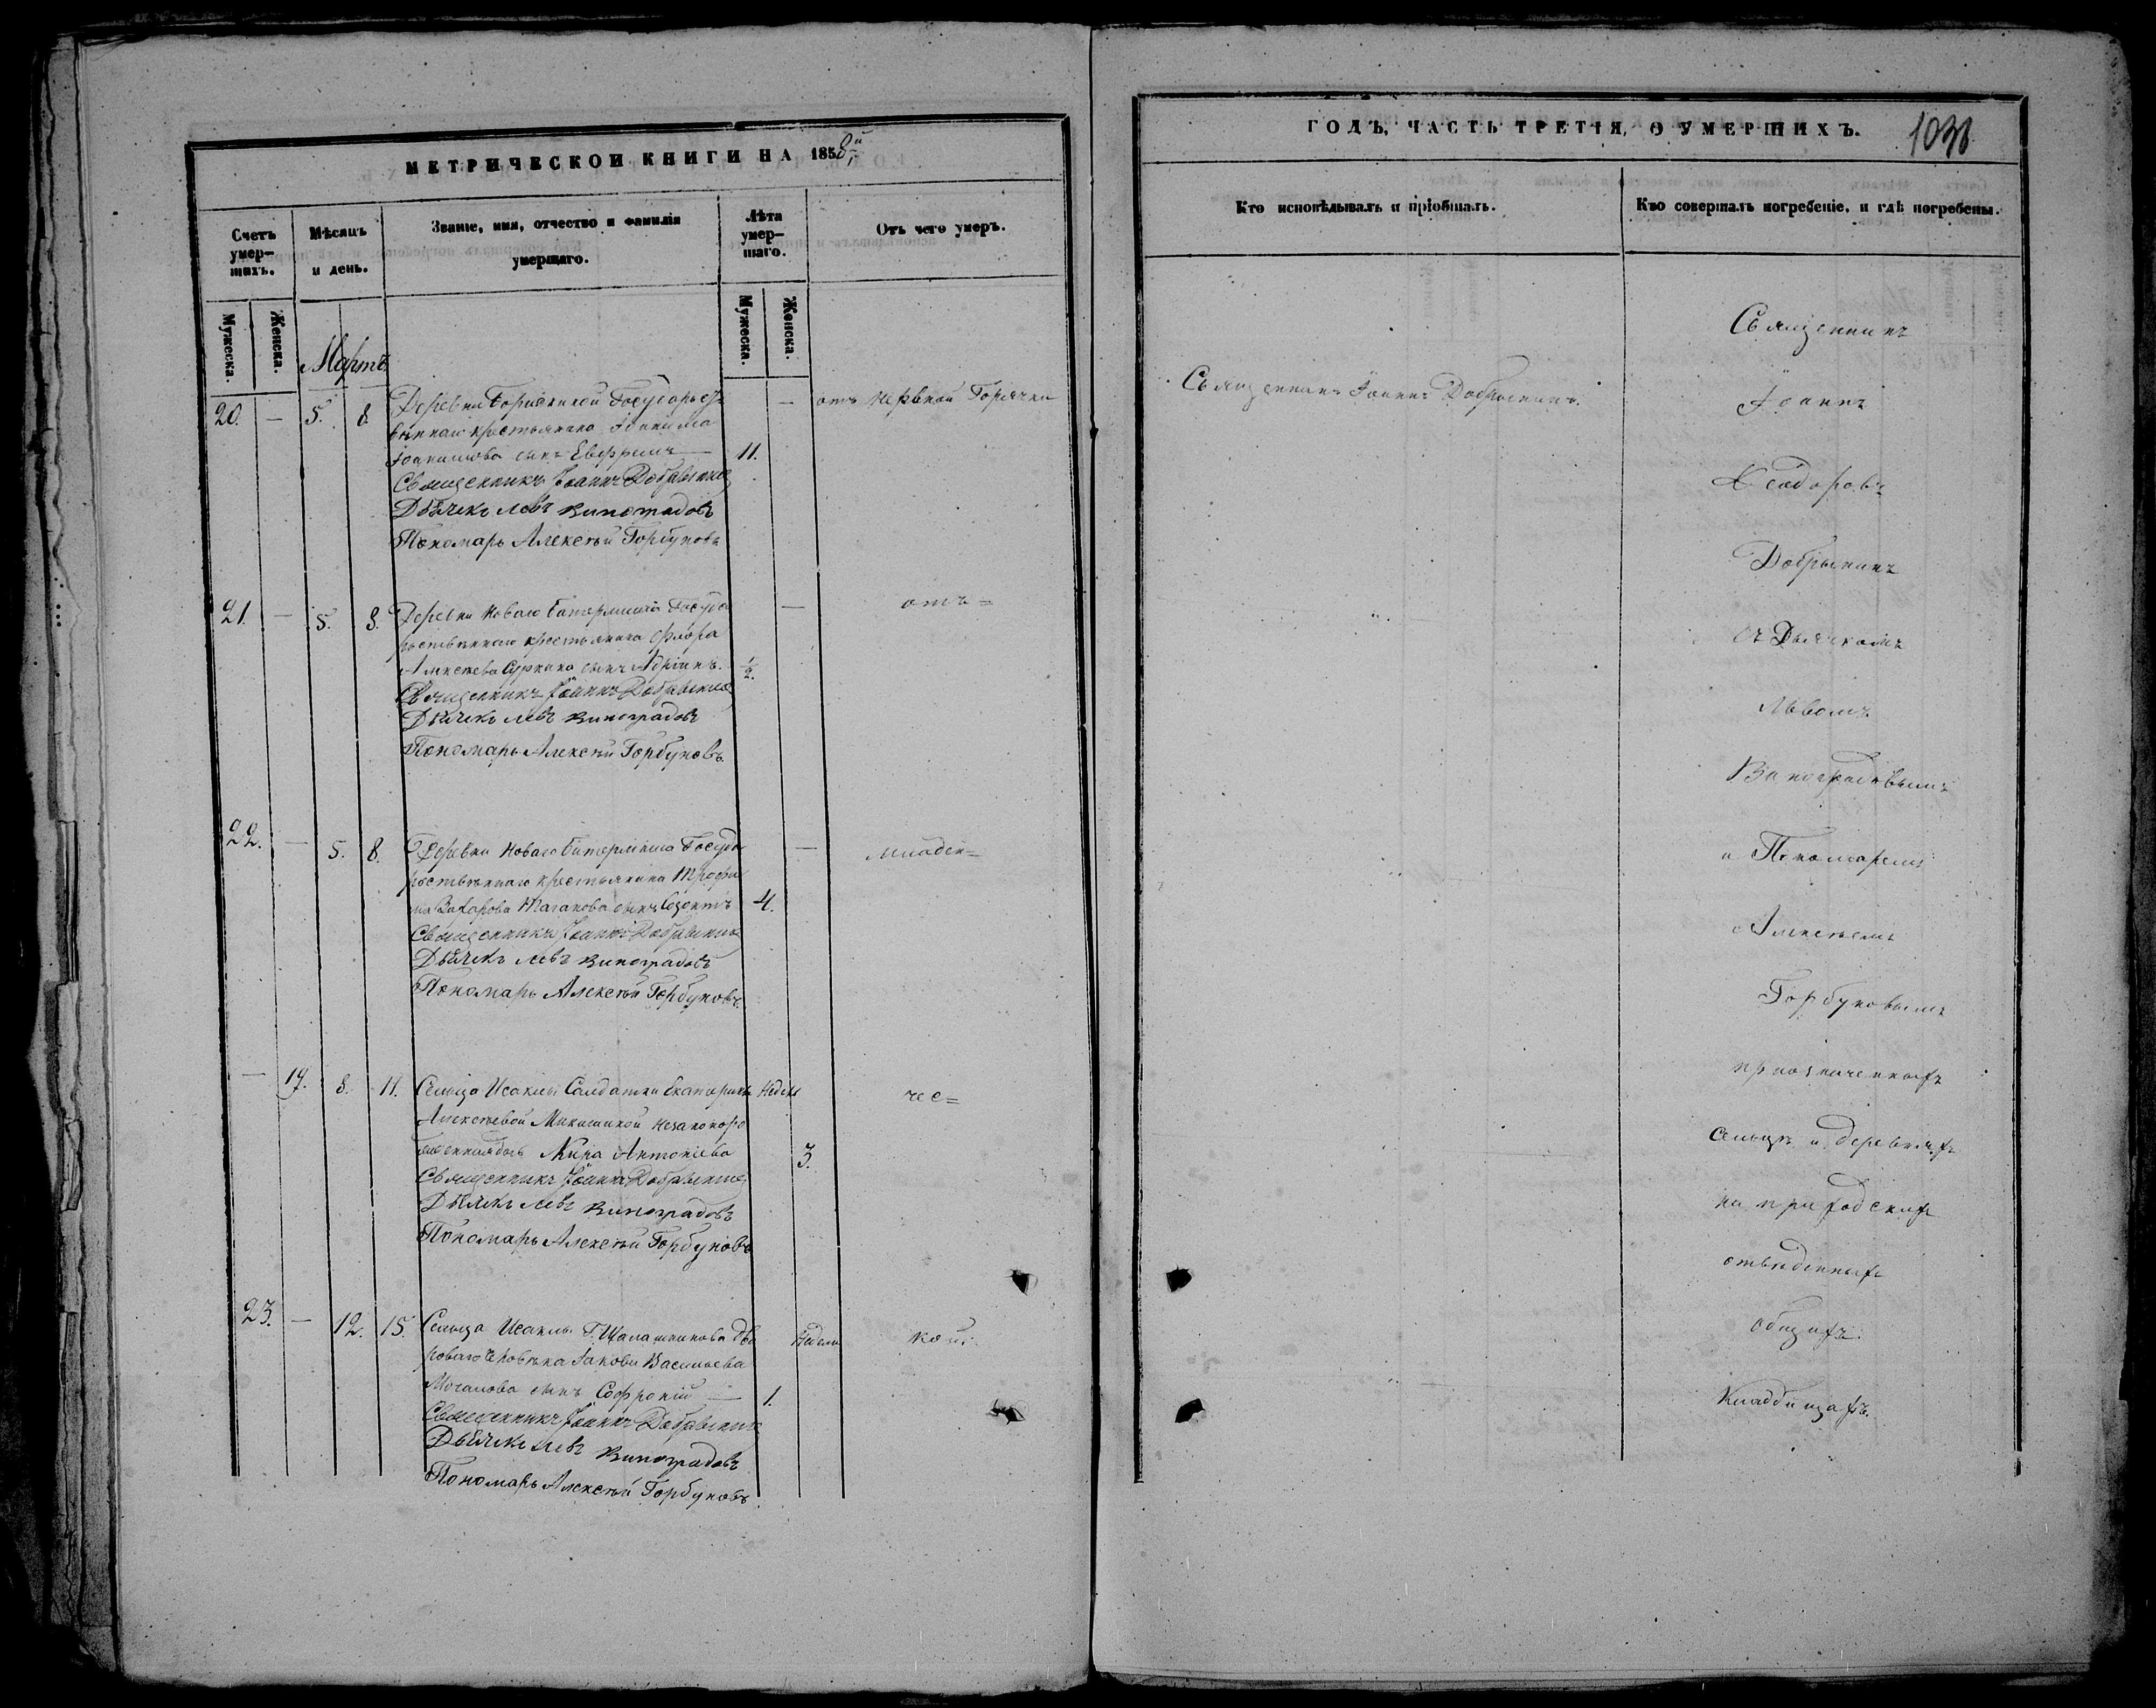 МЕТРИЧЕСКОЙ КНИГИ НА 1858й
Счетъ умер-шихъ.
Мѣсяцъ и день.
Званіе, имя, отчество и фамилія умершаго.
Лѣта умер-шаго.
Отъ чего умеръ.
Мужеска.
Женска.
Мужеска.
Женска.
Мартъ
20. — 5. 8. Деревни Государст
веннаго крестьянина Іоакима — отъ нервной Горячки
Іоакимова сынъ Евфремъ — 11.
Священникъ Іоаннъ Добрынинъ
Дьячекъ Левъ Виноградовъ
Пономарь Алексѣй Горбуновъ
21. — 5. 8. Деревни Новаго Государ — отъ=
рственнаго крестьянина Флора
Алексѣева сынъ Адріанъ. 1/2.
Священникъ Іоаннъ Добрынинъ
Дьячекъ Левъ Виноградовъ
Пономарь Алексѣй Горбуновъ.
22. — 5. 8. Деревни Новаго Госуда — младен=
рственнаго крестьянина Трофи
ма Захарова сынъ 4.
Священникъ Іоаннъ Добрынинъ
Дьячекъ Левъ Виноградовъ
Пономарь Алексѣй Горбуновъ.
— 17. 8. 11. Сельца Исаклы Солдатки Екатерины Недель чес=
Алексѣевой незаконоро
жденная дочь Антоніева 3.
Священникъ Іоаннъ Добрынинъ
Дьячекъ Левъ Виноградовъ
Пономарь Алексѣй Горбуновъ
23. — 12. 15. Сельца Исаклы Г. Шалашникова дво Недели кой.
роваго человѣка Іакова Васильева
Мочалова сынъ Софроній — 1.
Священникъ Іоаннъ Добрынинъ
Дьячекъ Левъ Виноградовъ
Пономарь Алексѣй Горбуновъ.
ГОДЪ, ЧАСТЬ ТРЕТІЯ, О УМЕРШИХЪ.
Кто исповѣдывалъ и пріобщалъ.
Кто совершалъ погребеніе, и гдѣ погребены.
Священникъ Іоаннъ Добрынинъ.
Священникъ
Іоаннъ
Ѳеодоровъ
Добрынинъ
съ Дьячкомъ
Львомъ
Виноградовымъ
и Пономаремъ
Алексѣемъ
Горбуновымъ
при означенныхъ
сельцѣ и деревняхъ
на приходскихъ
отведенныхъ
общихъ
Кладбищахъ.